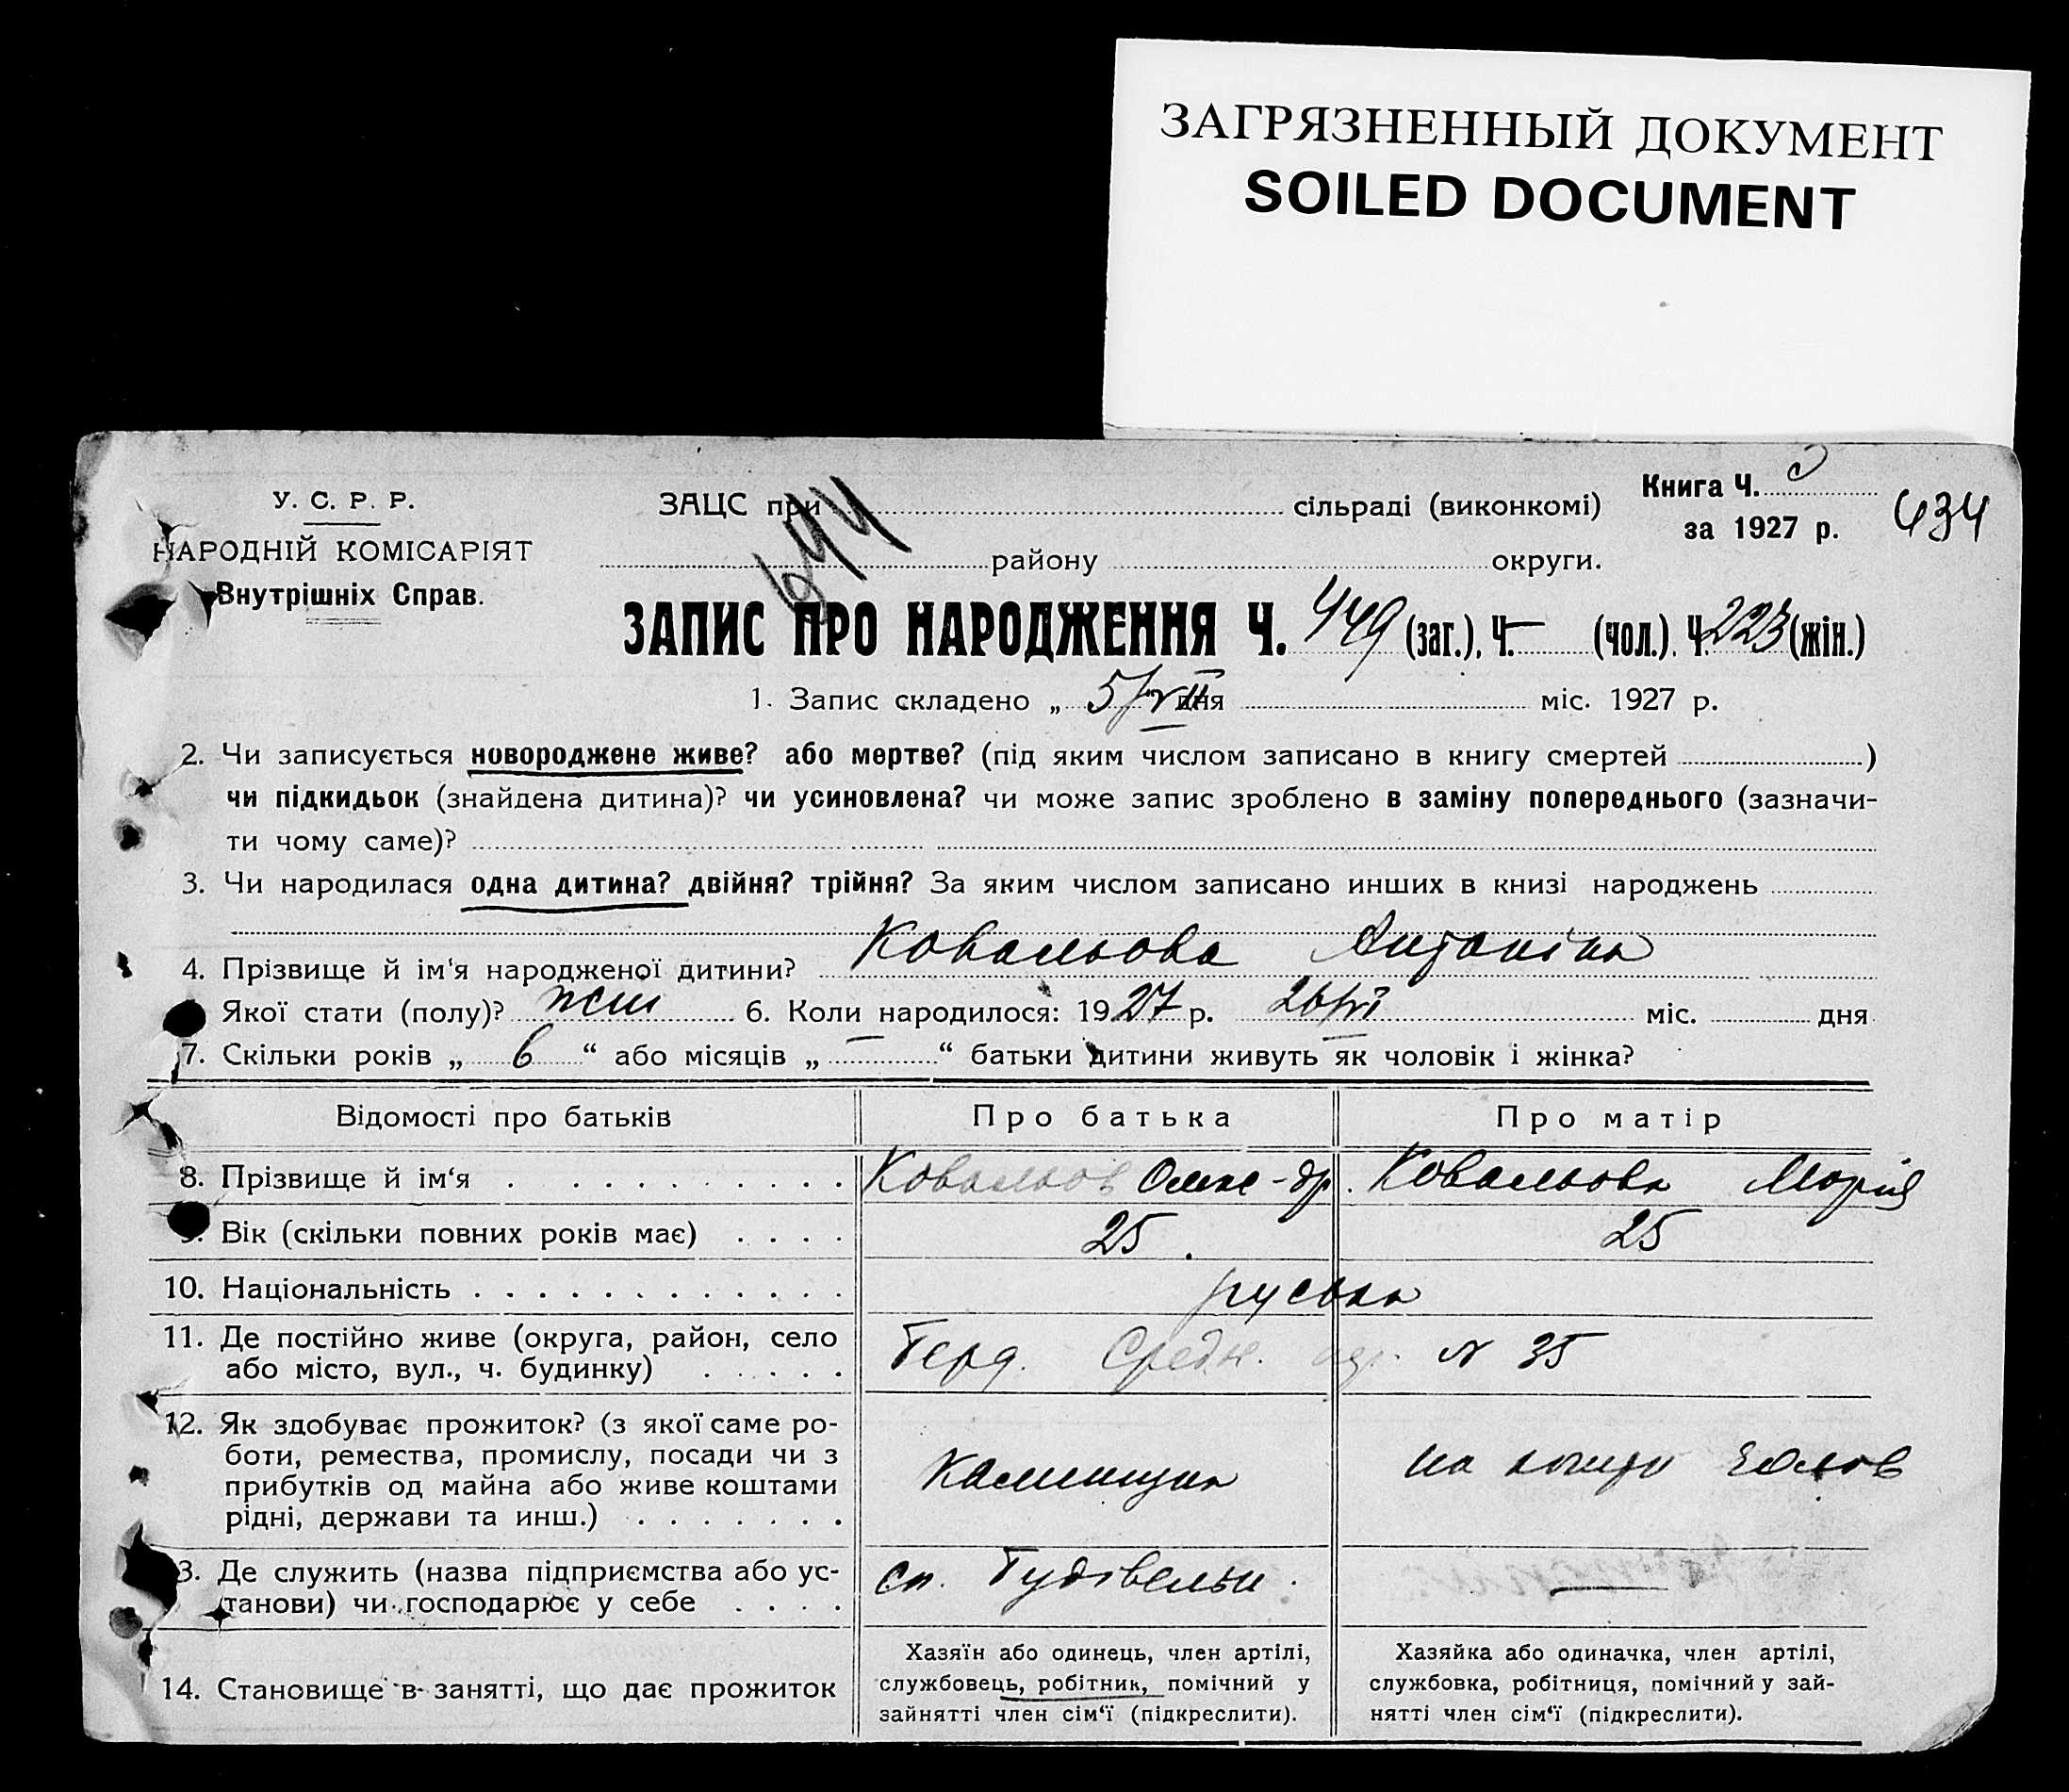 ЗАГРЯЗНЕННЫЙ ДОКУМЕНТ
SOILED DOCUMENT
У. С. Р. Р.
НАРОДНІЙ КОМІСАРІЯТ
Внутрішніх Справ.
644
ЗАЦС при сільраді (виконкомі)
району округи.
Книга Ч.
за 1927 р.
434
ЗАПИС ПРО НАРОДЖЕННЯ Ч. 449 (заг.), Ч. — (чол.). Ч. 223 (жін.)
1. Запис складено „ 5/VII дня міс. 1927 р.
2. Чи записується новороджене живе? або мертве? (під яким числом записано в книгу смертей )
чи підкидьок (знайдена дитина)? чи усиновлена? чи може запис зроблено в заміну попереднього (зазначи-
ти чому саме)?
3. Чи народилася одна дитина? двійня? трійня? За яким числом записано инших в книзі народжень
4. Прізвище й ім'я народженої дитини? Ковальова Антоніна
Якої стати (полу)? жін 6. Коли народилося: 1927 р. 26/VI міс. дня
7. Скільки років „ 6 “ або місяців „ — “ батьки дитини живуть як чоловік і жінка?
Відомості про батьків Про батька Про матір
8. Прізвище й ім‘я Ковальов Олекс-др. Ковальова Марія
9. Вік (скільки повних років має) 25. 25
10. Національність руська
11. Де постійно живе (округа, район, село
або місто, вул., ч. будинку) Берд. Средн. N 35
12. Як здобуває прожиток? (з якої саме ро-
боти, ремества, промислу, посади чи з
прибутків од майна або живе коштами
рідні, держави та инш.)
Каменщик на кошти чолов
13. Де служить (назва підприємства або ус-
танови) чи господарює у себе
сп. Будівельн. —
14. Становище в занятті, що дає прожиток
Хазяїн або одинець, член артілі,
службовець, робітник, помічний у
зайнятті член сім‘ї (підкреслити).
Хазяйка або одиначка, член артілі,
службовка, робітниця, помічний у зай-
нятті член сім‘ї (підкреслити).